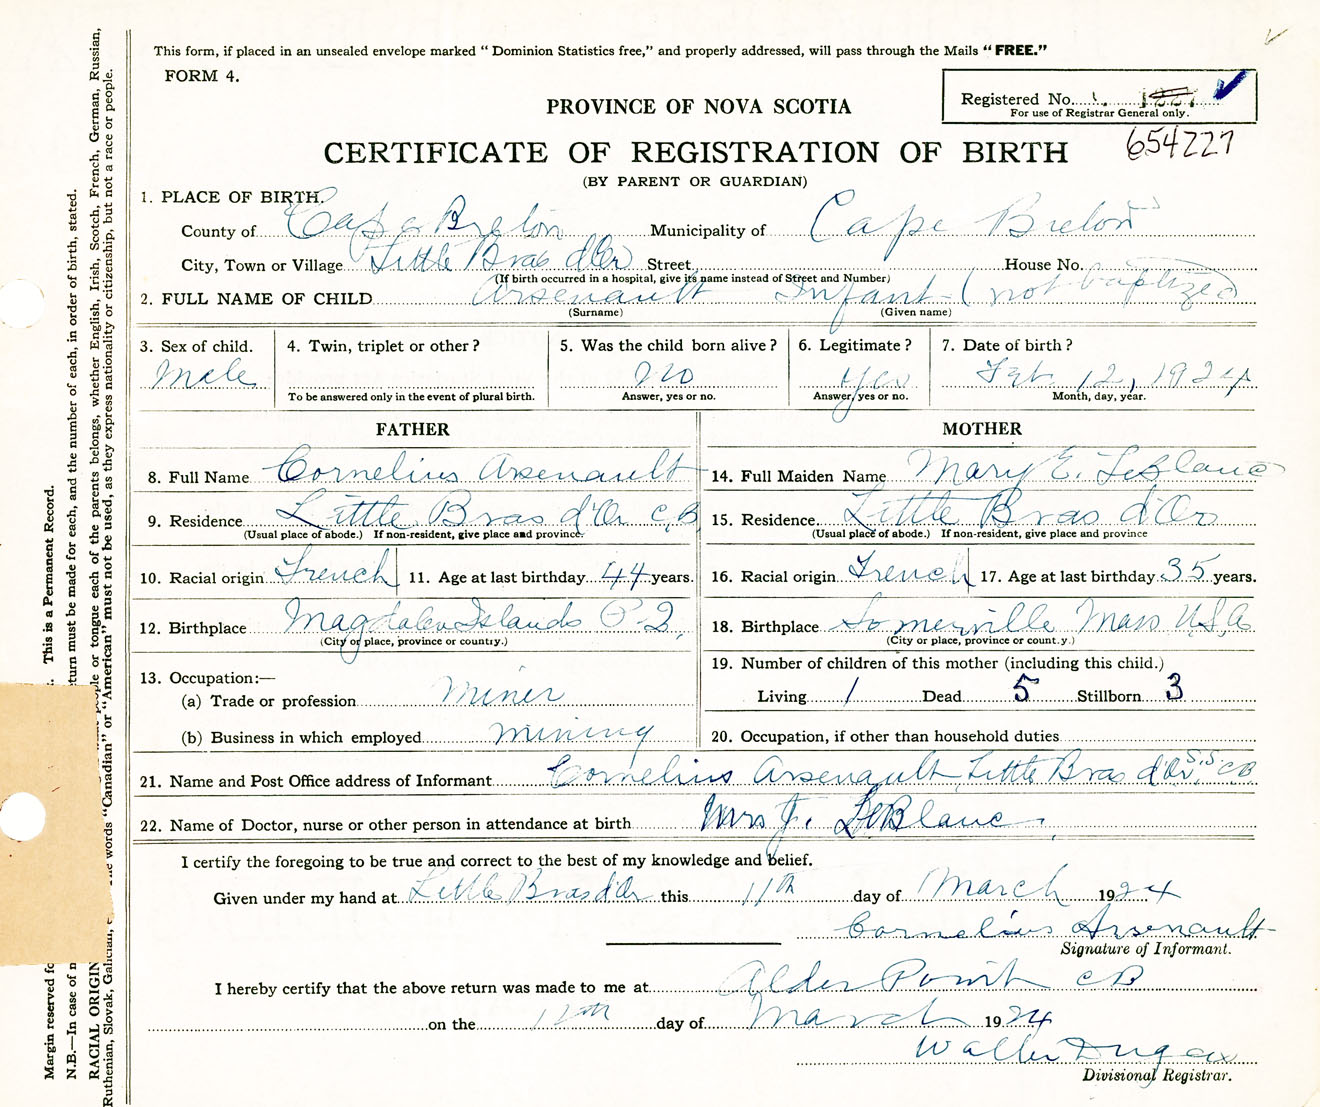 This form, if placed in an unsealed envelope marked “ Dominion Statistics free,” and properly addressed, will pass through the Mails “ FREE.”
FORM 4.
Registered No.
For use of Registrar General only.
654227
PROVINCE OF NOVA SCOTIA
CERTIFICATE OF REGISTRATION OF BIRTH
(BY PARENT OR GUARDIAN)
1. PLACE OF BIRTH.
County of Cape Breton Municipality of Cape Breton
City, Town or Village Little Bras d'Or Street House No.
(If birth occurred in a hospital, give its name instead of Street and Number)
2. FULL NAME OF CHILD Arsenault Infant (not baptized
(Surname) (Given name)
3. Sex of child. 4. Twin, triplet or other? 5. Was the child born alive? 6. Legitimate? 7. Date of birth?
Male No Yes Feb 12, 1924
To be answered only in the event of plural birth. Answer, yes or no. Answer, yes or no. Month, day, year.
FATHER MOTHER
8. Full Name Cornelius Arsenault 14. Full Maiden Name Mary E. LeBlanc
9. Residence Little Bras d'Or C.B. 15. Residence Little Bras d'Or
(Usual place of abode.) If non-resident, give place and province. (Usual place of abode.) If non-resident, give place and province
10. Racial origin French 11. Age at last birthday 44 years. 16. Racial origin French 17. Age at last birthday 35 years.
12. Birthplace Magdalen Islands P.Q. 18. Birthplace Somerville Mass U.S.A
(City or place, province or country.) (City or place, province or count.y.)
13. Occupation:— 19. Number of children of this mother (including this child.)
(a) Trade or profession Miner Living 1 Dead 5 Stillborn 3
(b) Business in which employed mining 20. Occupation, if other than household duties
21. Name and Post Office address of Informant Cornelius Arsenault Little Bras d'Or, S.S. CB
22. Name of Doctor, nurse or other person in attendance at birth Mrs J. LeBlanc.
I certify the foregoing to be true and correct to the best of my knowledge and belief.
Given under my hand at Little Bras d'Or this 11th day of March 1924
Cornelius Arsenault
Signature of Informant.
I hereby certify that the above return was made to me at Alder Point CB
on the 12th day of March 1924
Walter Dugas
Divisional Registrar.
Margin reserved fo This is a Permanent Record.
N.B.—In case of m turn must be made for each, and the number of each, in order of birth, stated.
RACIAL ORIGIN people or tongue each of the parents belongs, whether English, Irish, Scotch, French, German, Russian,
Ruthenian, Slovak, Galician, words “Canadian” or “American” must not be used, as they express nationality or citizenship, but not a race or people.